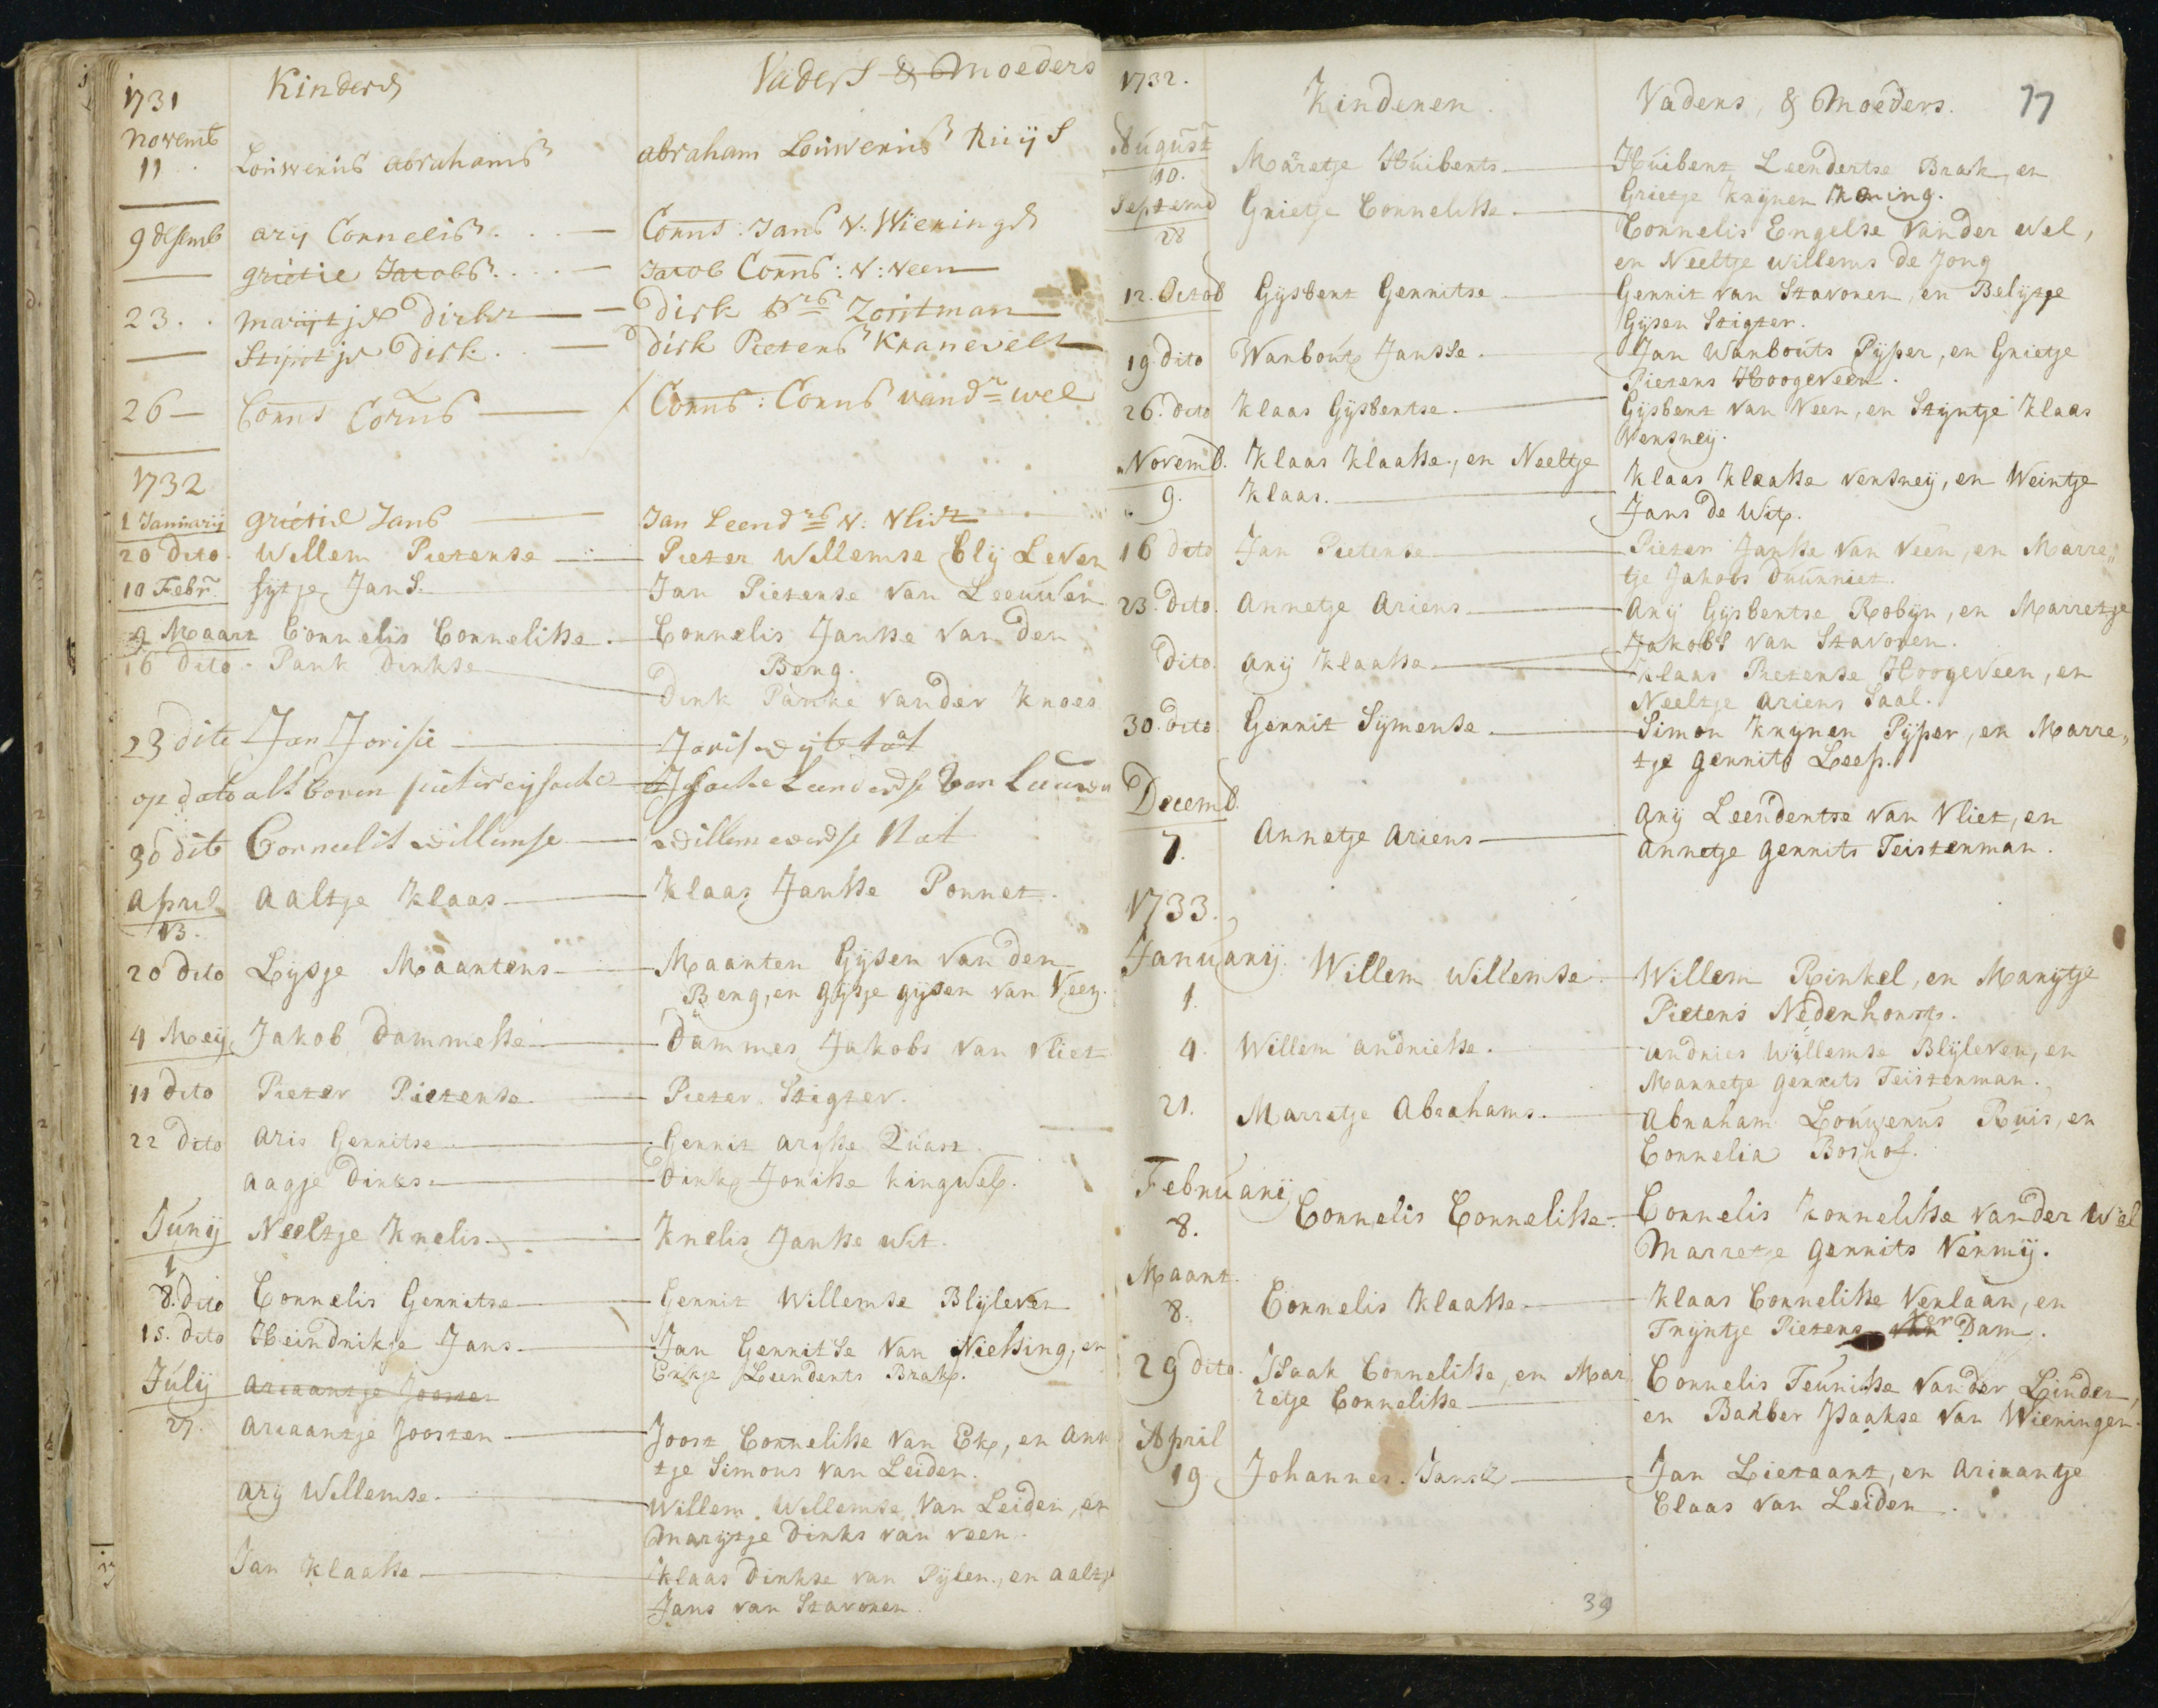 1731 Kinders Vaders & Moeders
novemb
11 Louwerus abrahams abraham Louwerus Ruijs
9 desemb arij Cornelis Corns: Jans v: Wieringe
grietie Jacobs Jacob Corns: v: veen
23 marijtje dirks dirk Zoutman
Stijntje dirk dirk Pieters Kranevelt
26 Corns Corns Corns: Corns vand wel
1732
1 Januarij grietie Jans Jan Leend v: vliet
20 dito Willem Pieterse Pieter Willemse Blij Leven
10 Febr. Sijtje Jans. Jan Pieterse van Leeuwen
9 Maart Cornelis Cornelisse. Cornelis Jansse van den
Berg.
16 dito Park Dirkse Dirk Parke vander Kroes
23 dito Jan Jorisse Joris
op dato als boven pieter eijsacke Isacke Leenderdse van Leuwen
30 dito Cornelis willemse willem everdse Nat
April
13. Aaltje Klaas Klaas Jansse Ponnet.
20 dito Lijsje Maartens Maarten Gijsen van den
Berg, en gijsje gijsen van Veen.
4 Meij Jakob Dammesse Dammes Jakobs van vliet
11 dito Pieter Pieterse Pieter Stigter.
22 dito Aris Gerritse Gerrit arisse Quast
Aagje Dirks. Dirk Jorisse kingwel.
Junij
1 Neeltje Krelis Krelis Jansse Wit.
8. dito Cornelis Gerritse Gerrit Willemse Blijleven
15. dito Heindrikje Jans Jan Gerritse van Niessing, en
Erkje Leenderts Brak.
Julij Ariaantje Joosten
27. Ariaantje Joosten Joost Cornelisse van Ek, en Ann
tje Simons van Leiden.
Arij Willemse. Willem Willemse van Leiden, en
Marijtje Dirks van veen.
Jan Klaasse Klaas Dirkse van Pijlen, en aaltje
Jans van Stavoren
1732. Kinderen. Vaders, & Moeders. 77
August
10. Marretje Huiberts Huibert Leendertse Brak, en
Grietje Krijnen Koning.
Septemb
28 Grietje Cornelisse. Cornelis Engelse vander Wel,
en Neeltje willems de Jong
12. Octob Gijsbert Gerritse Gerrit van Stavoren, en Belijtje
Gijsen Stigter.
19 dito Warbout Jansse. Jan Warbouts Pijper, en Grietje
Pieters Hoogeveen.
26. dito Klaas Gijsbertse. Gijsbert van Veen, en Stijntje Klaas
Versneij.
Novemb. Klaas Klaasse, en Neeltje
9. Klaas. Klaas Klaasse versneij, en Weintje
Jans de Wit.
16 dito Jan Pieterse Pieter Jansse van veen, en Marre„
tje Jakobs Duurniet.
23. dito. Annetje Ariens Arij Gijsbertse Robijn, en Marretje
Jakobs van Stavoren.
dito. Arij Klaasse Klaas Pieterse Hoogeveen, en
Neeltje Ariens Saal.
30. dito. Gerrit Sijmense. Simon Krijnen Pijper, en Marre„
tje gerrits Leep.
Decemb.
7. Annetje Ariens Arij Leendertse van Vliet, en
Annetje gerrits Teisterman.
1733.
Januarij
1. Willem Willemse Willem Rinkel, en Marijtje
Pieters Nederhorst.
4. Willem andriesse. andries Willemse Blijleven, en
Marretje gerrits Teisterman.
21. Marretje Abrahams. Abraham Louwerus Ruis, en
Cornelia Boshof.
Februarij
8. Cornelis Cornelisse. Cornelis kornelisse vander Wel
Marretje gerrits Vermij.
Maart.
8. Cornelis Klaasse Klaas Cornelisse Verlaan, en
Trijntje Pieters van ver Dam.
29 dito. Isaak Cornelisse, en Mar
retje Cornelisse Cornelis Teunisse vander Linden,
en Barber Isaakse van Wieringen.
April
19. Johannes. Janse Jan Lietaart, en Ariaantje
Claas van Leiden.
39